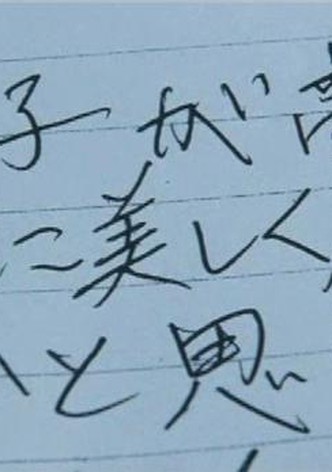 子が
に美しく
いと思